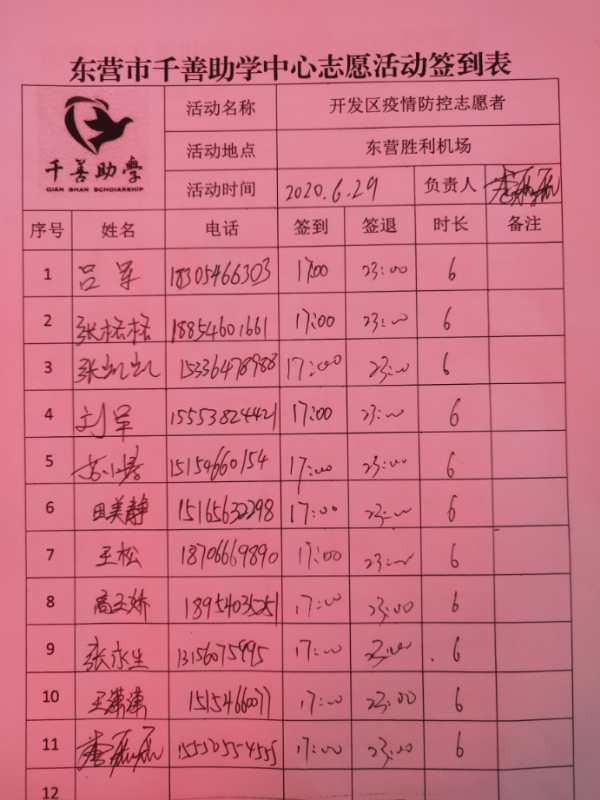 东营市千善助学中心志愿活动签到表
千善助學
QIAN SHAN SCHOLARSHIP
活动名称 开发区疫情防控志愿者
活动地点 东营胜利机场
活动时间 2020.6.29 负责人
序号 姓名 电话 签到 签退 时长 备注
1 吕军 18305466303 17:00 23:00 6
2 张松松 18854601661 17:00 23:00 6
3 张凯凯 15336478988 17:00 23:00 6
4 刘军 15553824421 17:00 23:00 6
5 15154660154 17:00 23:00 6
6 田美静 15165632298 17:00 23:00 6
7 王松 18706669890 17:00 23:00 6
8 高玉娇 18954035251 17:00 23:00 6
9 张永生 13156075995 17:00 23:00 6
10 王潇潇 17:00 23:00 6
11 17:00 23:00 6
12